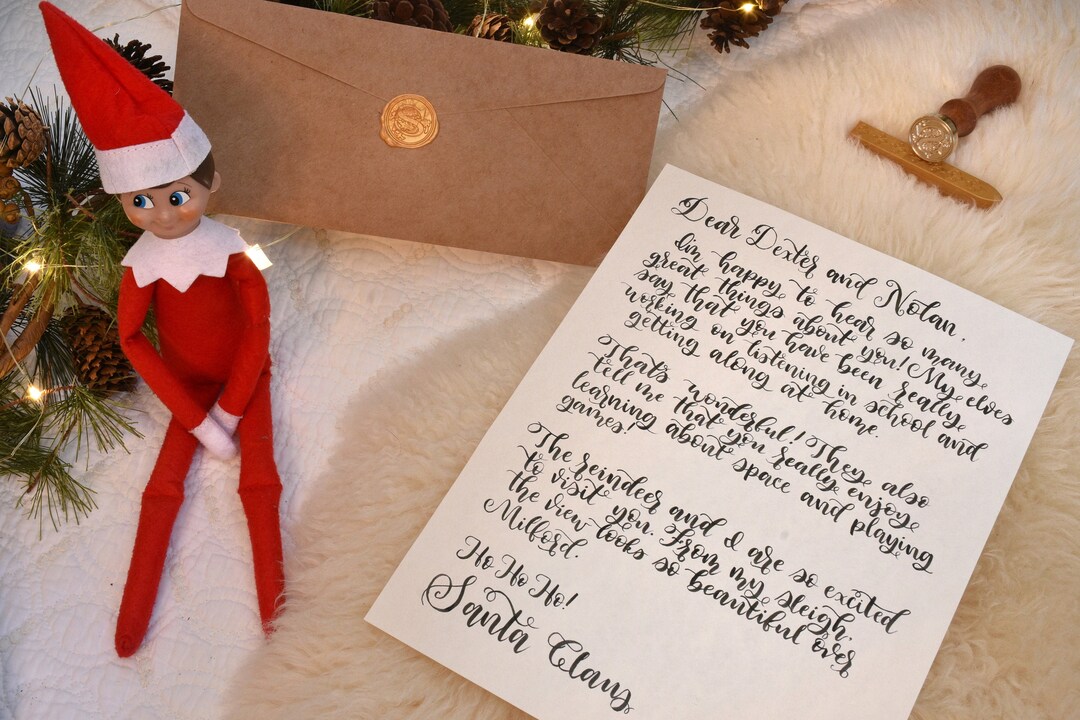 Dear Dexter and Nolan,
I'm happy to hear so many
great things about you! My elves
say that you have been really
working on listening in school and
getting along at home.
That's wonderful! They also
tell me that you really enjoy
learning about space and playing
games!
The reindeer and I are so excited
to visit you. From my sleigh,
the view looks so beautiful over
Milford.
Ho Ho Ho!
Santa Claus
S